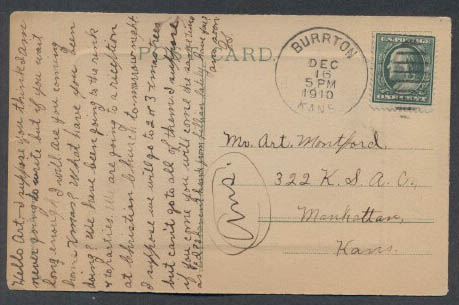 POST CARD
BURRTON
DEC
16
5 PM
1910
KANS.
U.S. POSTAGE
ONE CENT
Mr. Art. Montford.
322 K. S. A. C.,
Manhattan,
Kans.
Ans.
Hello Art. I suppose you think I am
never going to write but if you wait
long enough I will are you coming
home Xmas? What have you been
doing? We have been going to the rink
& to parties. We are going to a reception
at Christian Church tomorrow night
I suppose we will go to 2 or 3 Xmas trees
but can't go to all of them I suppose
if you come you will come
heard from Lillian lately have you?
ans soon